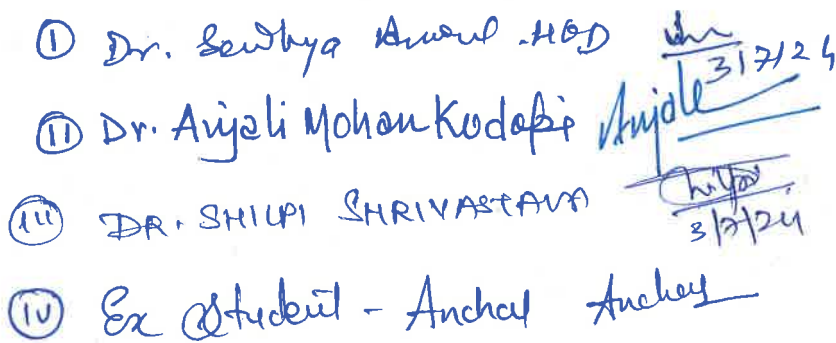 (I) Dr. Sandhya Anand .HOD 3/7/24
(II) Dr. Anjali Mohan Kodape Anjali
(III) DR. SHILPI SHRIVASTAVA Shilpi 3/7/24
(IV) Ex Student - Anchal Anchal